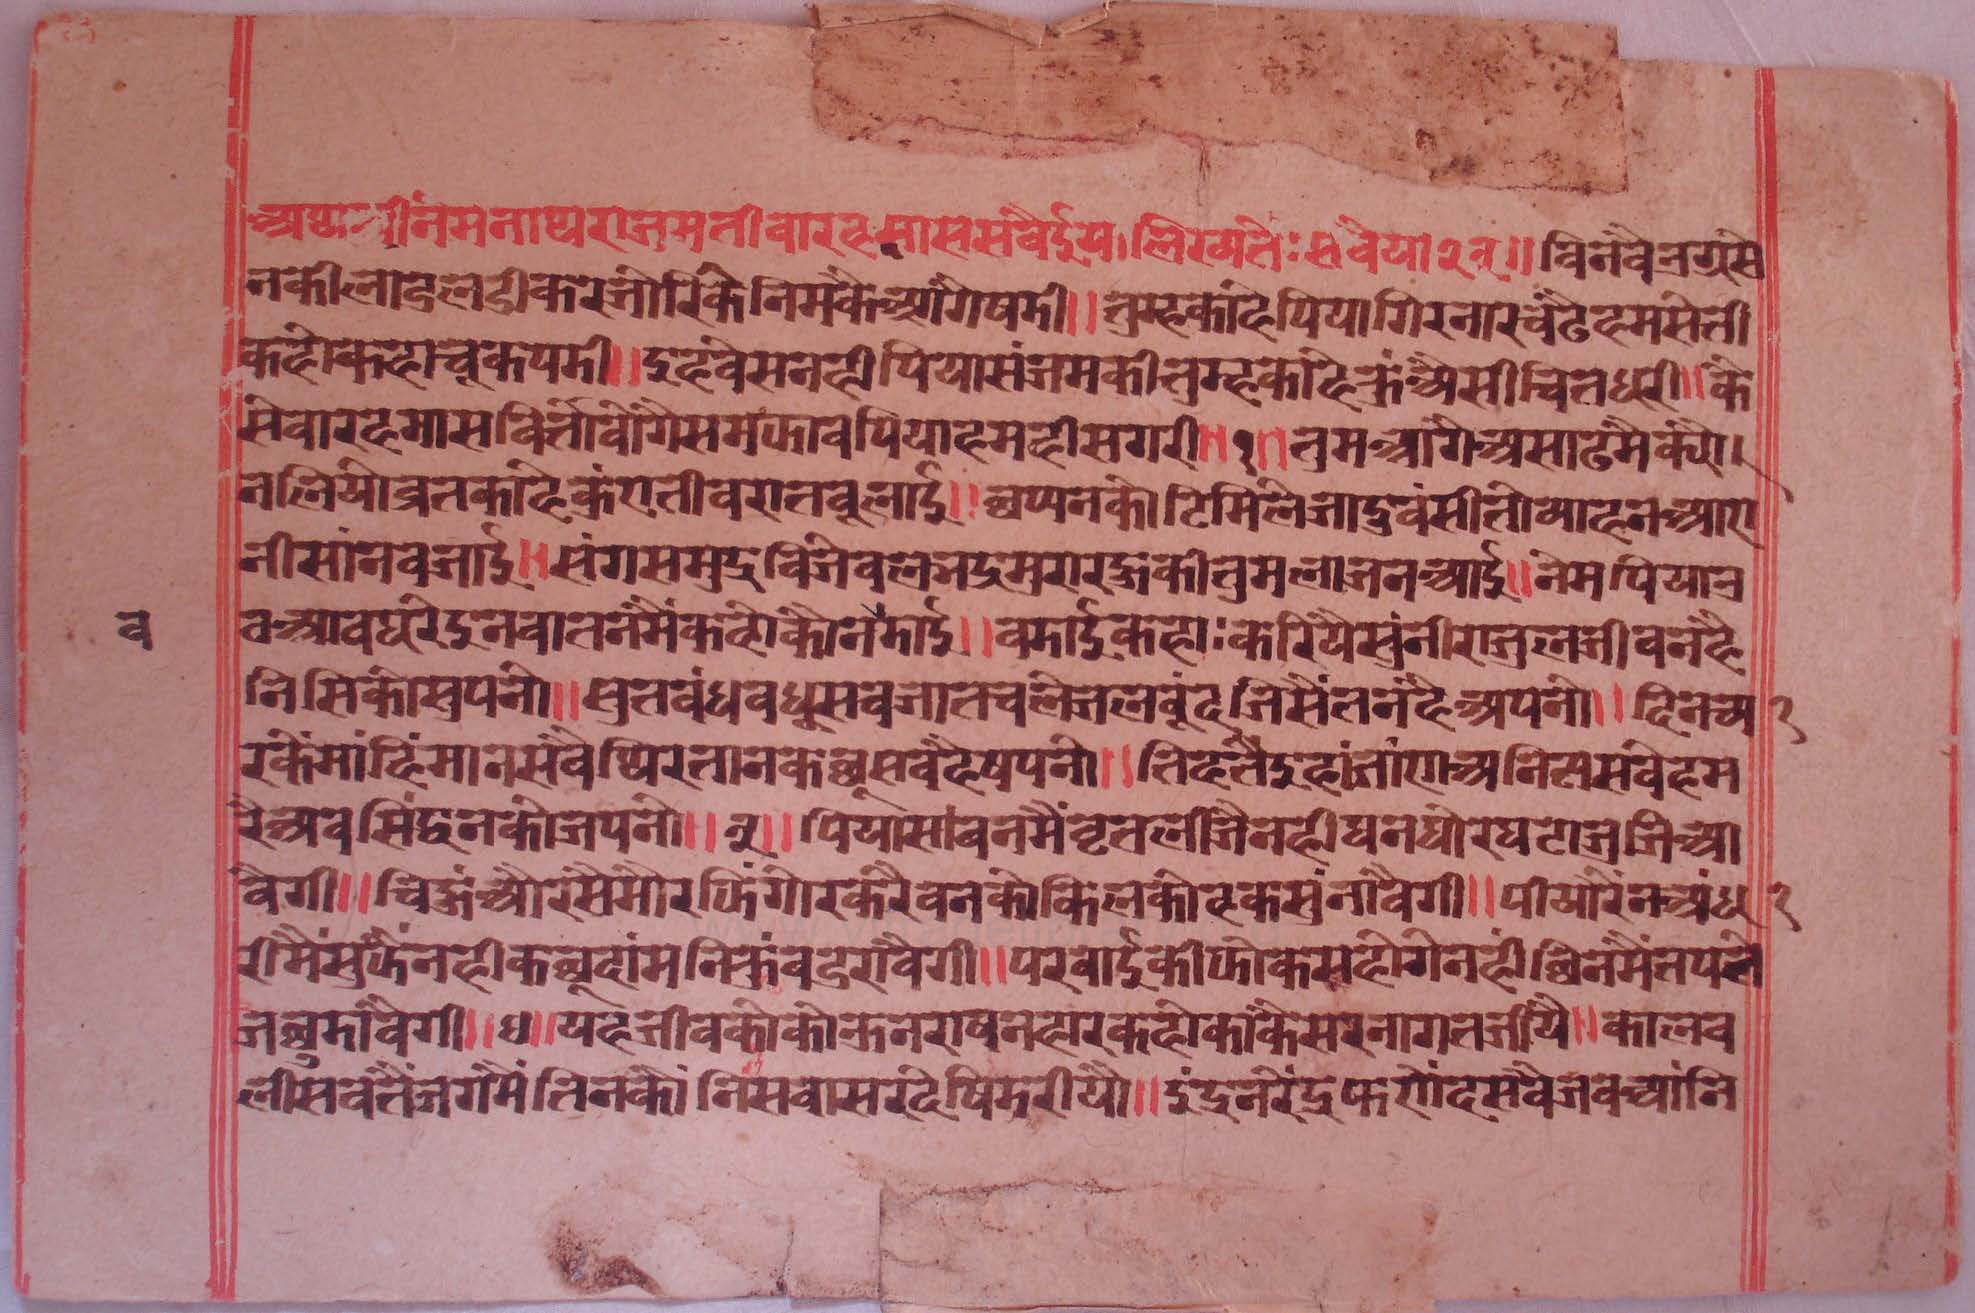 अथ श्री नेमनाथराजमतीबारहमाससवैईय लिख्यतेः सवैया २३ ॥ विनवै उग्रसे
नकी लाडलडी करजोरिकै नेमकै आगै षडी ॥ तुम्ह काहे पिया गिरनार चढे हमसेती
कहो कहा चूक पडी ॥ इह वेस नही पिया संजमकी तुम्ह काहेकुं अैसी चित धरी ॥ कै
से बारहमास वितावोगे समझाव पिया हमही सगरी ॥ १ ॥ तुम आगै असाढमै क्यो
न लियो व्रत काहेकुं एती बरात बूलाई ॥ छप्पन कोटि मिले जादुवंसी तो ब्याहन आए
नीसांन बजाई ॥ संग समुद्रविजै बलभद्र मुरारहुकी तुम लाज न आई ॥ नेम पिया उ
व आव घरे इन बातनमै कहो कौन बडाई ॥ वडाई कहाः करियै सुंनी राजुल जीवन है
निसिको सुपनो ॥ सुत बंधव धू सब जात चले जलबूंद जिसै तन है अपनो ॥ दिन च्य
रकै मांहि मानसवै थिरता न कछू सब है षपनो ॥ तिहतै इह जांण अनित्त सवै हम
रै अब सिद्धनको जपनो ॥ ३ ॥ पिया सांवनमै वृत लीजै नही घन घोर घटा जुरि आ
वैगी ॥ चिहुं औरसै मोर झिंगोर करै वन कोकिल कोहक सुनावैगी ॥ पीया रैन अंधे
रीमै सुझै नही कछू दांमनिकुं व डरावैगी ॥ परवाईकी झोक सहोगे नही छिनमै तप ते
ज छुडावैगी ॥ ४ ॥ यह जीवको को उन राषनहार कहो काकै सरनागत जीयै ॥ काल ब
ली सबतै जगमै तिनको निसवासर देषि डरीयै ॥ इंद्र नरेंद्र फणेंद सवै जब आंनि
व